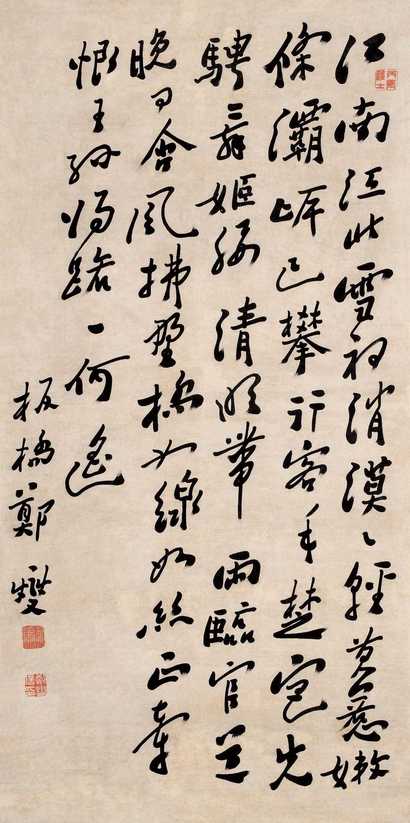 江南江北雪初消漠々輕黃惹嫩
條灞岸已攀行客手楚宮先
騁舞姬腰清明帶雨臨官道
晚日會風拂野橋如線如絲正牽
恨王孫歸路一何遙
板橋鄭燮